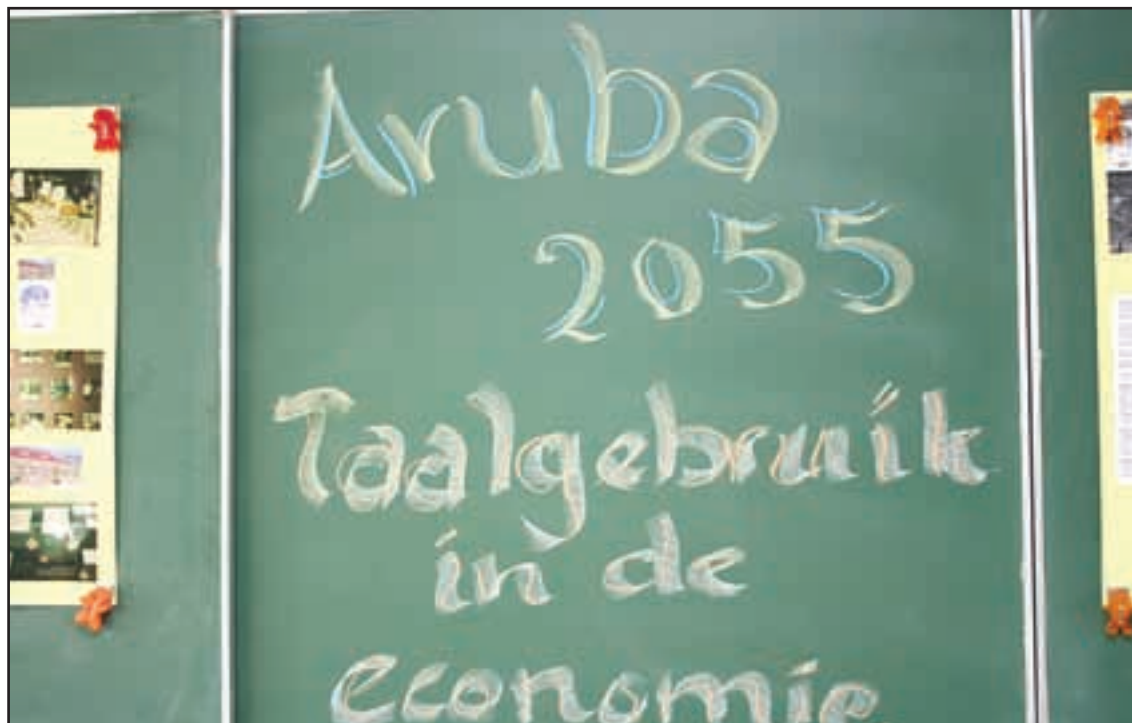 Aruba
2055
Taalgebruik
in de
economie